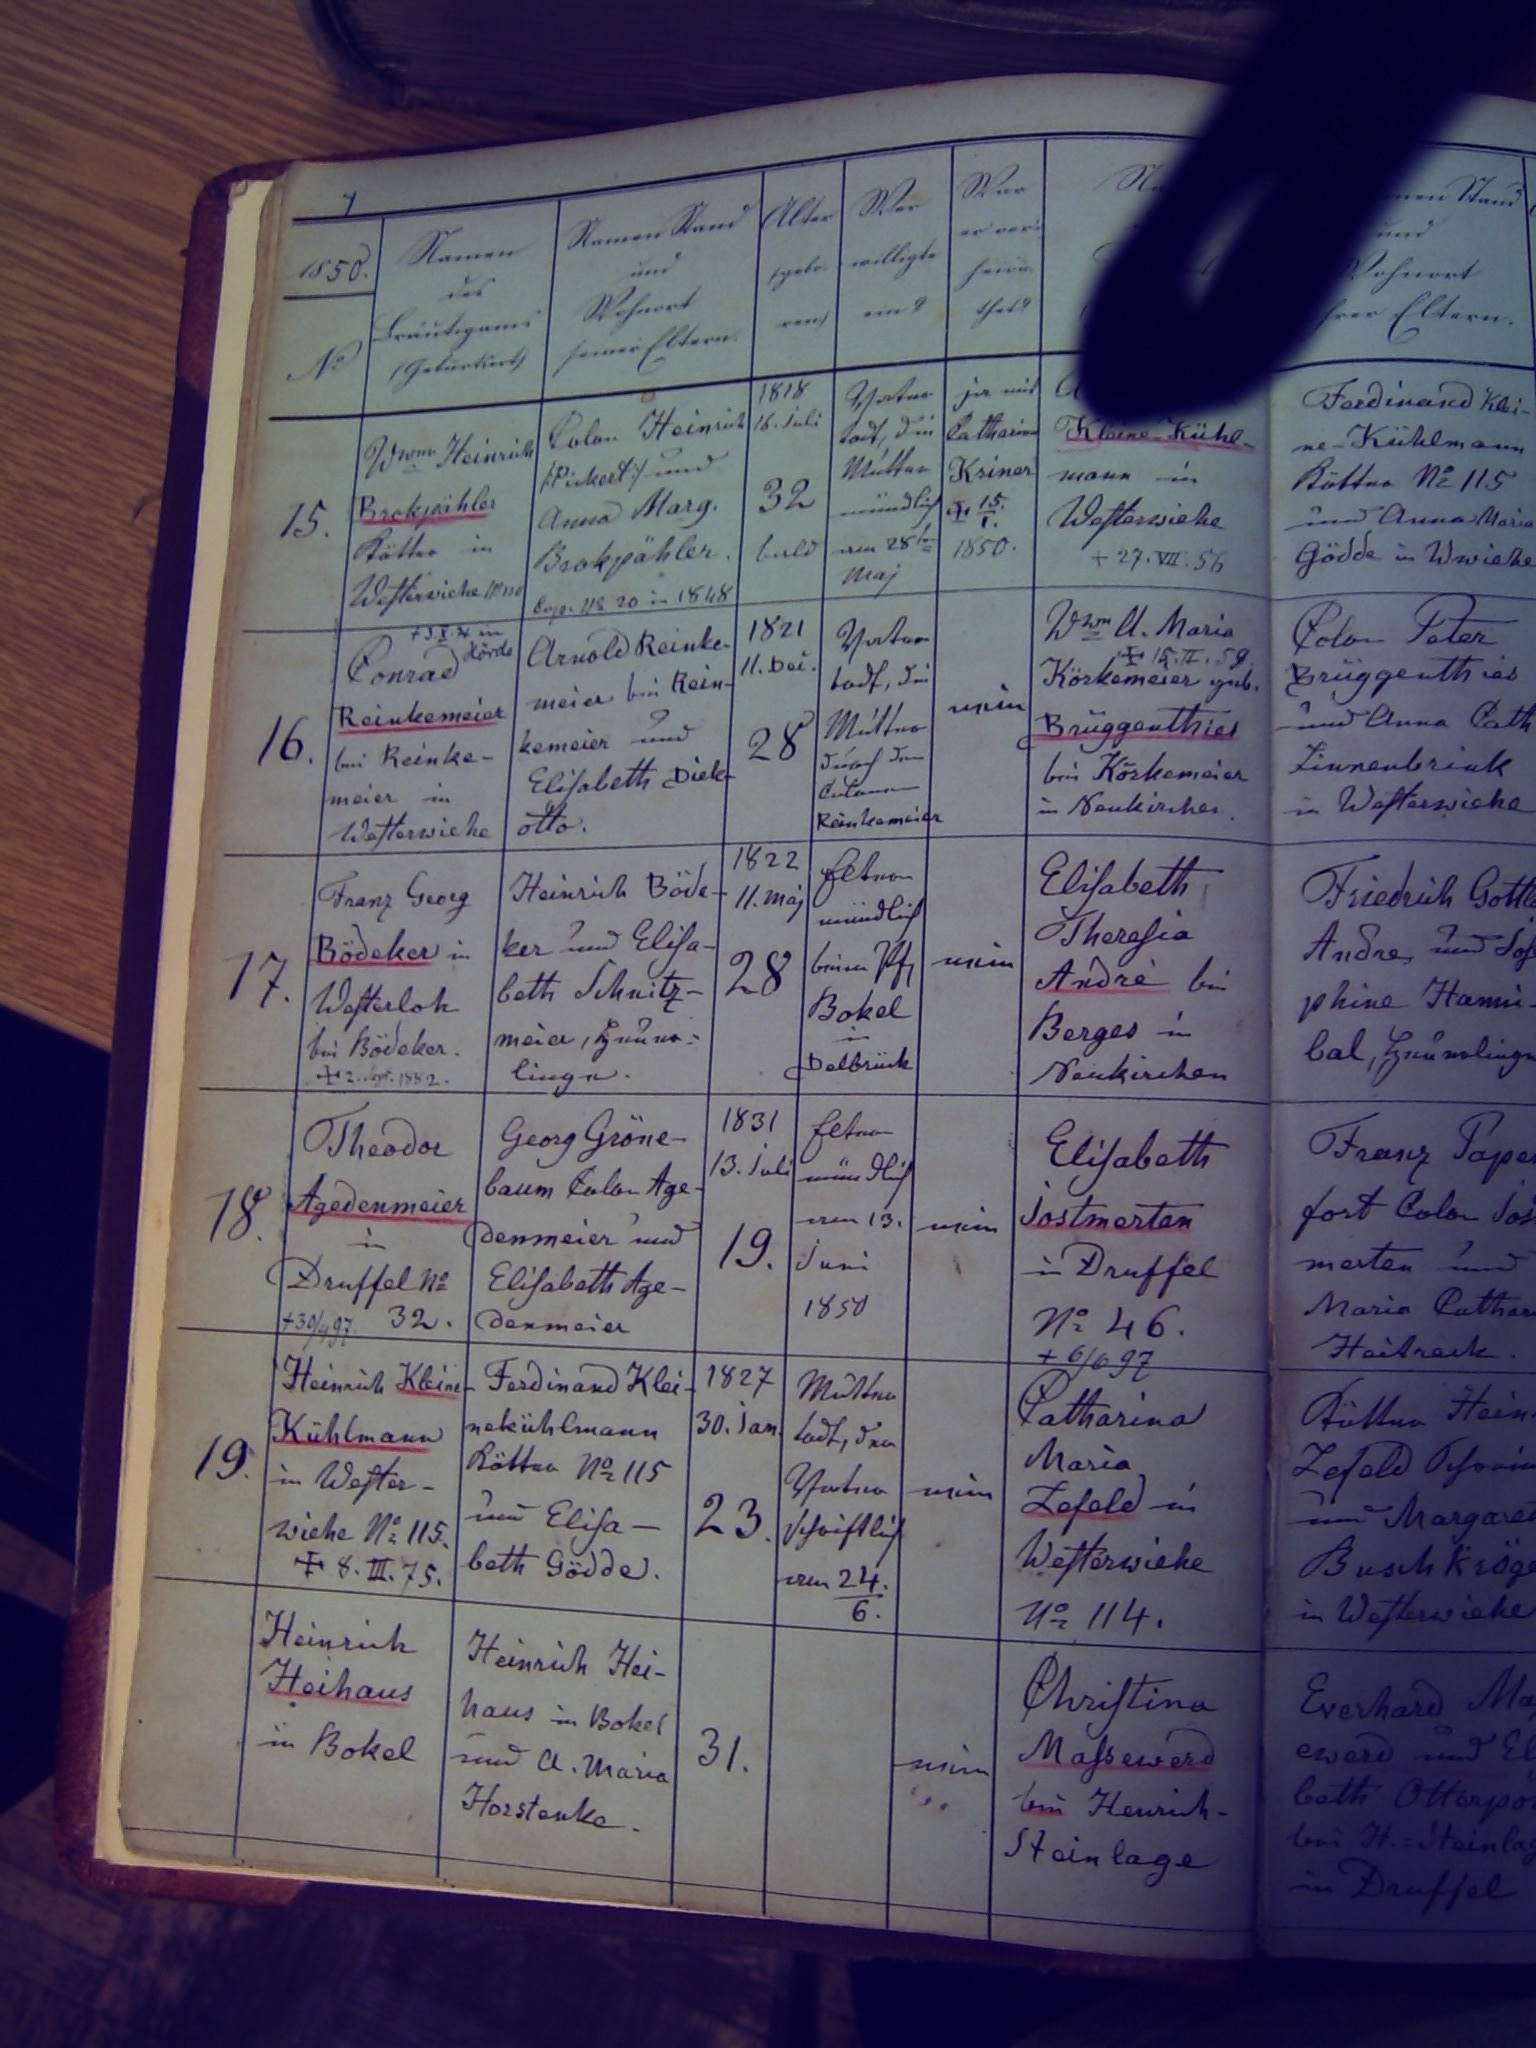 1850.
No
Namen
des
Bräutigams
(Geburtsort)
Namen Stand
und
Wohnort
seiner Eltern.
Alter
(gebo-
ren)
Wer
willigte
ein?
War
er ver-
heira-
thet?
Namen Stand
und
Wohnort
ihrer Eltern.
15.
Wwer Heinrich
Brokpähler
Kötter in
Westerwiehe
Colon Heinrich
(:Pickert:) und
Anna Marg.
Brokpähler.
Cop. No 20 in 1848
1818
16. Juli
32
bald
Vater
todt, die
Mutter
mündlich
am 28ten
Maj
ja mit
Catharina
Kriner
+ 15.
1.
1850.
Kleine-Kühl-
mann in
Westerwiehe
+ 27. VII. 56
Ferdinand Klei-
ne-Kühlmann
Kötter No 115
und Anna Maria
Gödde in Wwiehe
16.
Conrad
Reinkemeier
bei Reinke-
meier in
Westerwiehe
Arnold Reinke-
meier bei Rein-
kemeier und
Elisabeth Diek-
otto.
1821
11. Dec.
28
Vater
todt, die
Mutter
durch den
Colonen
Reinkemeier
nein
Wwe A. Maria
+ 15. II. 59.
Körkemeier geb.
Brüggenthies
bei Körkemeier
in Neukirchen.
Colon Peter
Brüggenthies
und Anna Cath
Linnenbrink
in Westerwiehe
17.
Franz Georg
Bödeker in
Westerloh
bei Bödeker.
+ 2. Sept. 1882.
Heinrich Böde-
ker und Elisa-
beth Schnitz-
meier, Heuer-
linge.
1822
11. Maj
28
Eltern
mündlich
beim Pf,
Bokel
in
Delbrück
nein
Elisabeth
Theresia
André bei
Berges in
Neukirchen
Friedrich Gottl
Andre, und Jose
phine Hanni-
bal, Heuerlinge
18.
Theodor
Agedenmeier
in
Druffel No
32.
+30/4 97.
Georg Gröne-
baum Colon Age-
denmeier und
Elisabeth Age-
denmeier
1831
13. Juli
19.
Eltern
mündlich
am 13.
Juni
1850
nein
Elisabeth
Jostmerten
in Druffel
No 46.
+ 6/6 97
Franz Pape
fort Colon Jos
merten und
Maria Cathar
Heitreck.
19.
Heinrich Kleine-
Kühlmann
in Wester-
wiehe No 115.
+ 8. III. 75.
Ferdinand Klei-
nekühlmann
Kötter No 115
und Elisa-
beth Gödde.
1827
30. Jan.
23.
Mutter
todt, der
Vater
schriftlich
am 24.
6.
nein
Catharina
Maria
Lefeld in
Westerwiehe
No 114.
Kötter Hein
Lefeld
und Margare
Buschkröge
in Westerwiehe
Heinrich
Heihaus
in Bokel
Heinrich Hei-
haus in Bokel
und A. Maria
Horstenke.
31.
nein
Christina
Massewerd
bei Henrich-
Steinlage
Everhard Ma
ewerd und El
beth Otterpo
bei H.=Steinlag
in Druffel